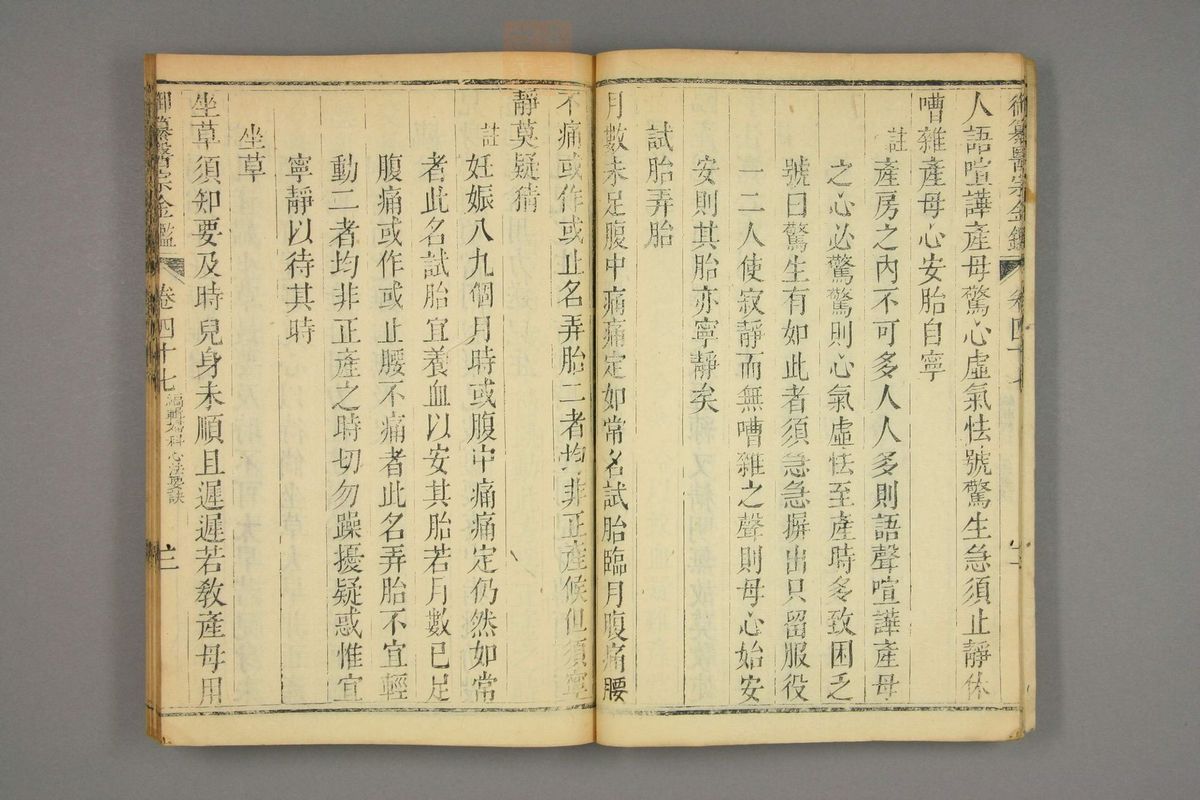 御纂醫宗金鑑 卷四十七
人語喧譁產母驚心虛氣怯號驚生急須止靜休
嘈雜產母心安胎自寧
註 產房之內不可多人人多則語聲喧譁產母
之心必驚驚則心氣虛怯至產時多致困乏
號曰驚生有如此者須急急摒出只留服役
一二人使寂靜而無嘈雜之聲則母心始安
安則其胎亦寧靜矣
試胎弄胎
月數未足腹中痛痛定如常名試胎臨月腹痛腰
不痛或作或止名弄胎二者均非正產候但須寧
靜莫疑猜
註 妊娠八九個月時或腹中痛痛定仍然如常
者此名試胎宜養血以安其胎若月數已足
腹痛或作或止腰不痛者此名弄胎不宜輕
動二者均非正產之時切勿躁擾疑惑惟宜
寧靜以待其時
坐草
坐草須知要及時兒身未順且遲遲若教產母用
御纂醫宗金鑑 卷四十七 編輯婦科心法要訣